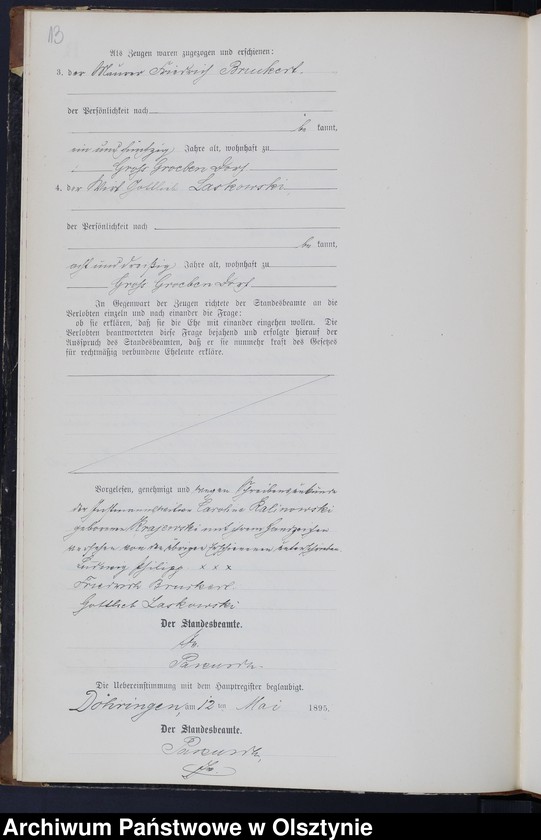 13
Als Zeugen waren zugezogen und erschienen:
3. der Maurer Friedrich Bruckert.
der Persönlichkeit nach
be kannt,
ein und fünfzig Jahre alt, wohnhaft zu
Groß Groeben Dorf
4. der Wirt Gottlieb Laskowski
der Persönlichkeit nach
be kannt,
acht und dreißig Jahre alt, wohnhaft zu
Groß Groeben Dorf
In Gegenwart der Zeugen richtete der Standesbeamte an die
Verlobten einzeln und nach einander die Frage:
ob sie erklären, daß sie die Ehe mit einander eingehen wollen. Die
Verlobten beantworteten diese Frage bejahend und erfolgte hierauf der
Ausspruch des Standesbeamten, daß er sie nunmehr kraft des Gesetzes
für rechtmäßig verbundene Eheleute erkläre.
Vorgelesen, genehmigt und wegen Schreibensunkunde
der Caroline Kalinowski
geborene Krajewski mit ihrem Handzeichen
versehen von den übrigen Erschienenen unterschrieben
Ludwig Philipp x x x
Friedrich Bruckert.
Gottlieb Laskowski
Der Standesbeamte.
Die Uebereinstimmung mit dem Hauptregister beglaubigt.
Döhringen, am 12 ten Mai 1895.
Der Standesbeamte.
Archiwum Państwowe w Olsztynie